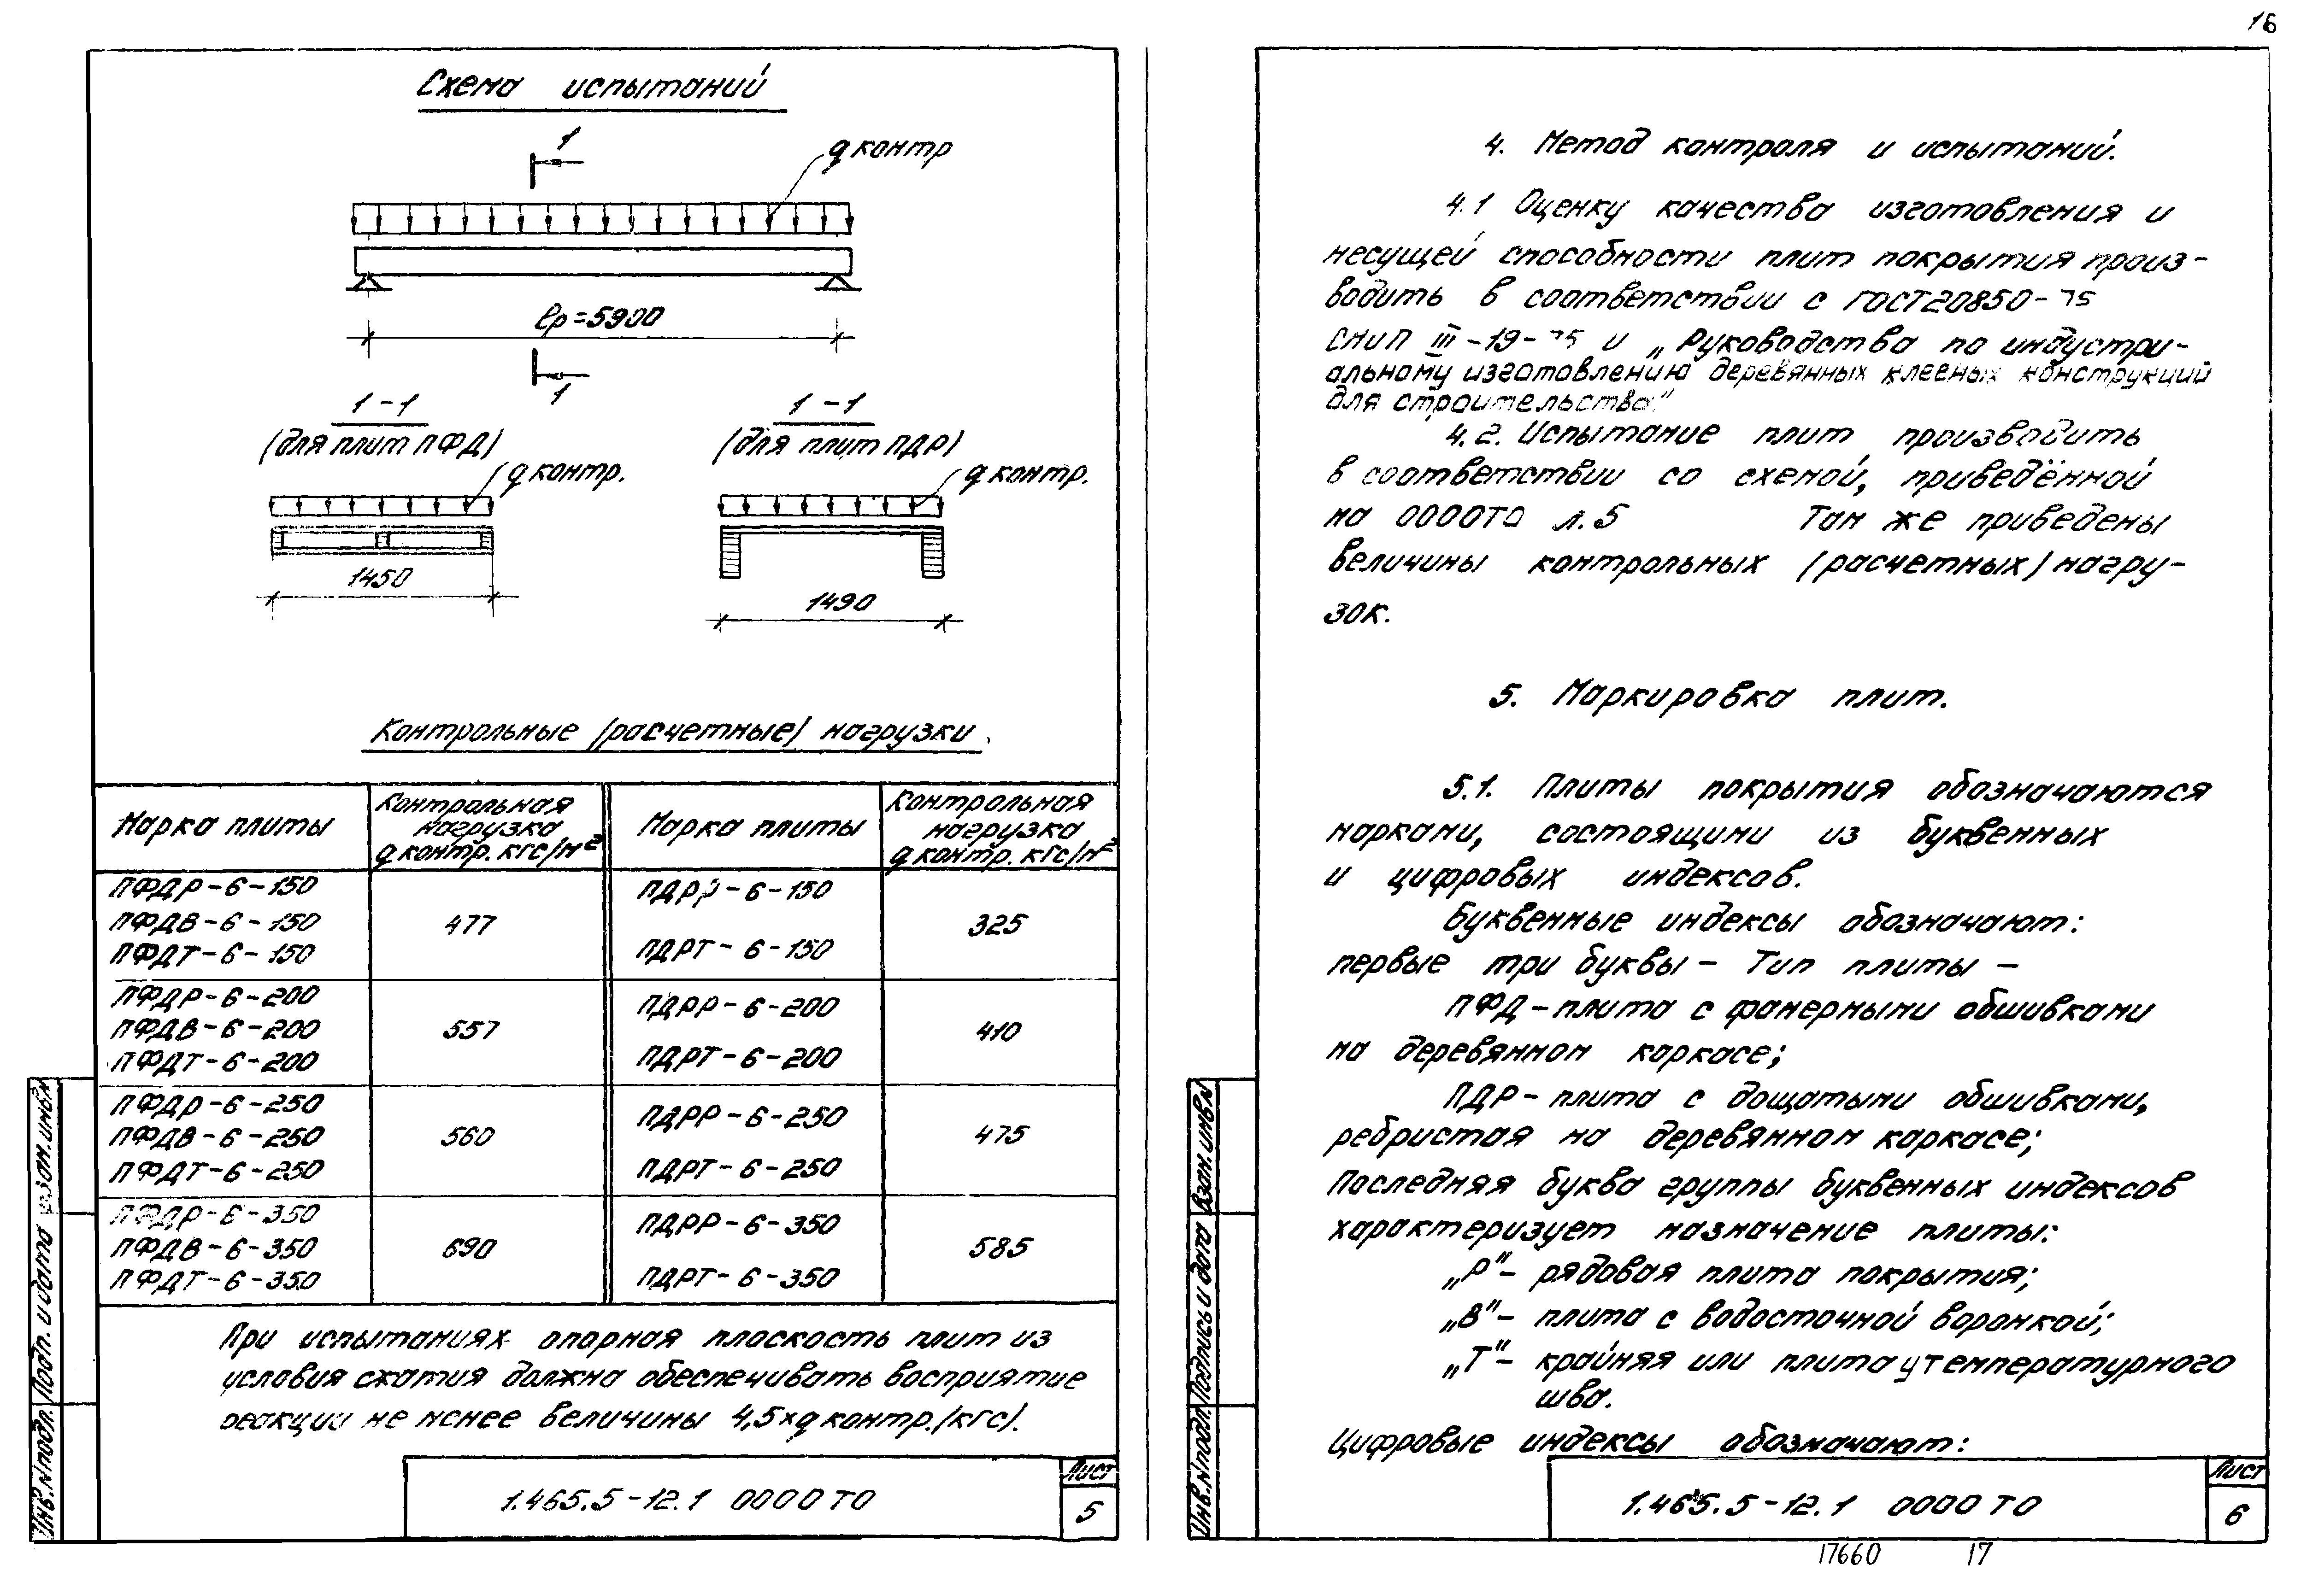 16
Схема испытаний
1
q контр
ℓр=5900
1
1-1
(для плит ПФД)
q контр.
1450
1-1
(для плит ПДР)
q контр.
1490
Контрольные (расчетные) нагрузки.
Марка плиты
Контрольная
нагрузка
q контр. кгс/м²
Марка плиты
Контрольная
нагрузка
q контр. кгс/м²
ПФДР-6-150
ПФДВ-6-150
ПФДТ-6-150
477
ПДРР-6-150
ПДРТ-6-150
325
ПФДР-6-200
ПФДВ-6-200
ПФДТ-6-200
557
ПДРР-6-200
ПДРТ-6-200
410
ПФДР-6-250
ПФДВ-6-250
ПФДТ-6-250
560
ПДРР-6-250
ПДРТ-6-250
475
ПФДР-6-350
ПФДВ-6-350
ПФДТ-6-350
690
ПДРР-6-350
ПДРТ-6-350
585
При испытаниях опорная плоскость плит из
условия сжатия должна обеспечивать восприятие
реакции не менее величины 4,5×q контр.(кгс).
1.465.5-12.1 0000 ТО
Лист
5
Инв.№подл.
Подп. и дата
Взам.инв№
4. Метод контроля и испытаний.
4.1 Оценку качества изготовления и
несущей способности плит покрытия произ-
водить в соответствии с ГОСТ 20850-75
СНиП III-19-75 и „Руководства по индустри-
альному изготовлению деревянных клееных конструкций
для строительства"
4.2. Испытание плит производить
в соответствии со схемой, приведённой
на 0000ТО л.5 Там же приведены
величины контрольных (расчетных) нагру-
зок.
5. Маркировка плит.
5.1. Плиты покрытия обозначаются
марками, состоящими из буквенных
и цифровых индексов.
Буквенные индексы обозначают:
первые три буквы - Тип плиты -
ПФД-плита с фанерными обшивками
на деревянном каркасе;
ПДР- плита с дощатыми обшивками,
ребристая на деревянном каркасе;
Последняя буква группы буквенных индексов
характеризует назначение плиты:
„Р"- рядовая плита покрытия;
„В"- плита с водосточной воронкой;
„Т"- крайняя или плита у температурного
шва.
Цифровые индексы обозначают:
1.465.5-12.1 0000 ТО
Лист
6
Инв.№подл.
Подпись и дата
Взам.инв№
17660 17